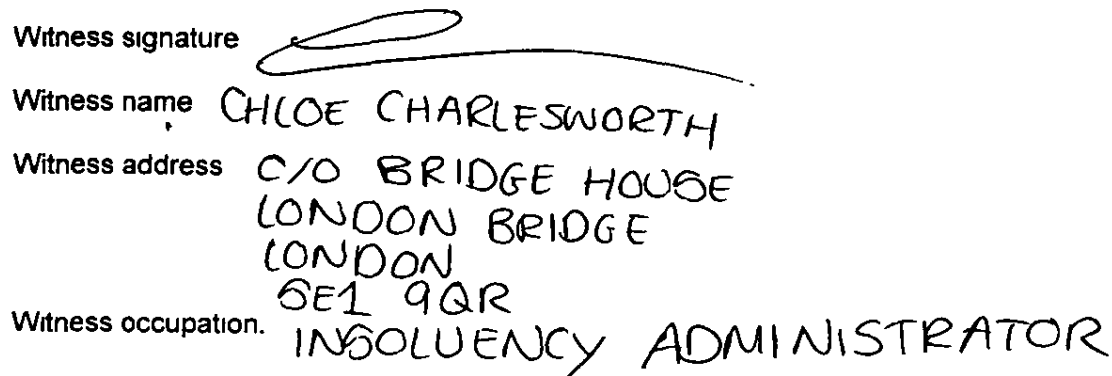 Witness signature
Witness name CHLOE CHARLESWORTH
Witness address C/O BRIDGE HOUSE
LONDON BRIDGE
LONDON
SE1 9QR
Witness occupation. INSOLUENCY ADMINISTRATOR